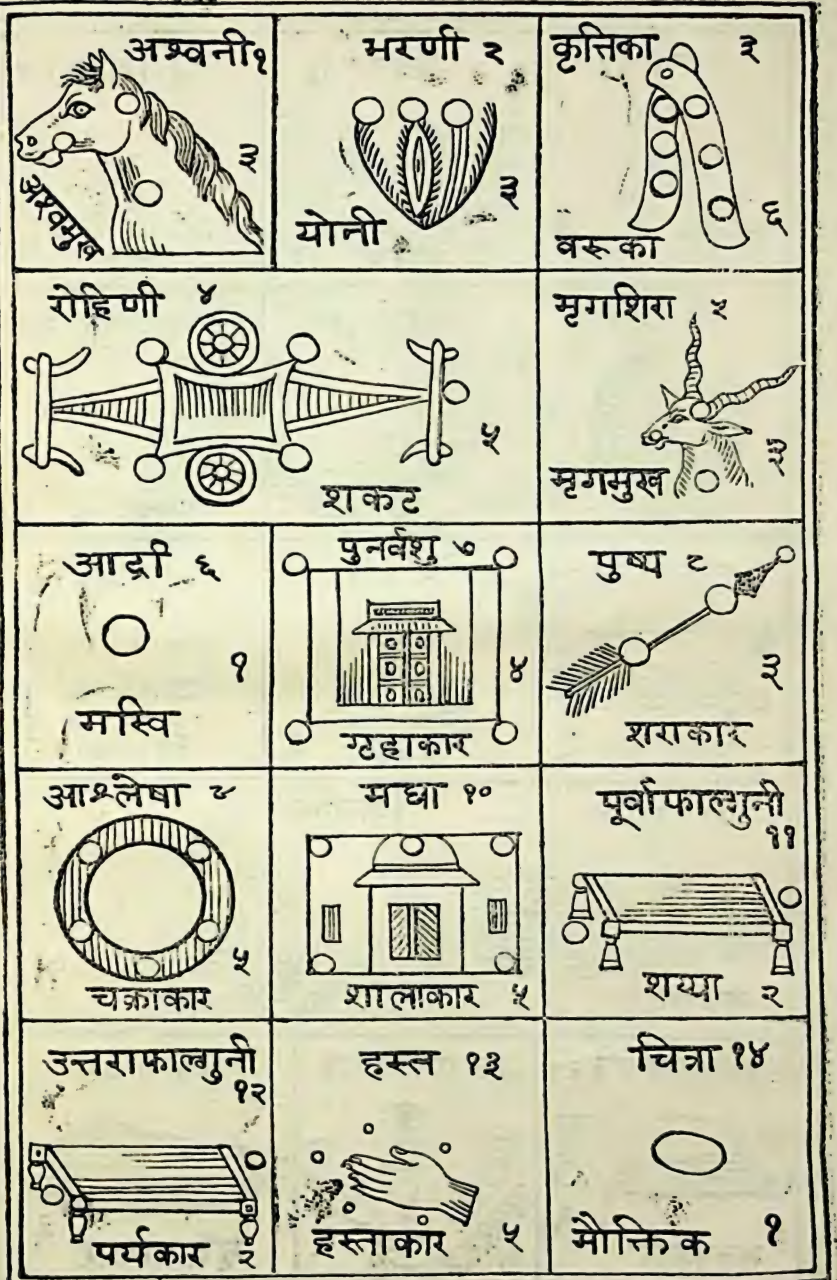 अश्वनी१
३
अश्वमुख
भरणी २
३
योनी
कृत्तिका ३
६
वरूका
रोहिणी ४
५
शकट
मृगशिरा ५
३
मृगमुख
आर्द्रा ६
१
मस्वि
पुनर्वशु ७
४
गृहाकार
पुष्य ८
३
शराकार
आश्लेषा ९
५
चक्राकार
मघा १०
शालाकार ५
पूर्वाफाल्गुनी
११
शय्या २
उत्तराफाल्गुनी
१२
पर्यकार २
हस्त १३
हस्ताकार ५
चित्रा १४
मौक्तिक १